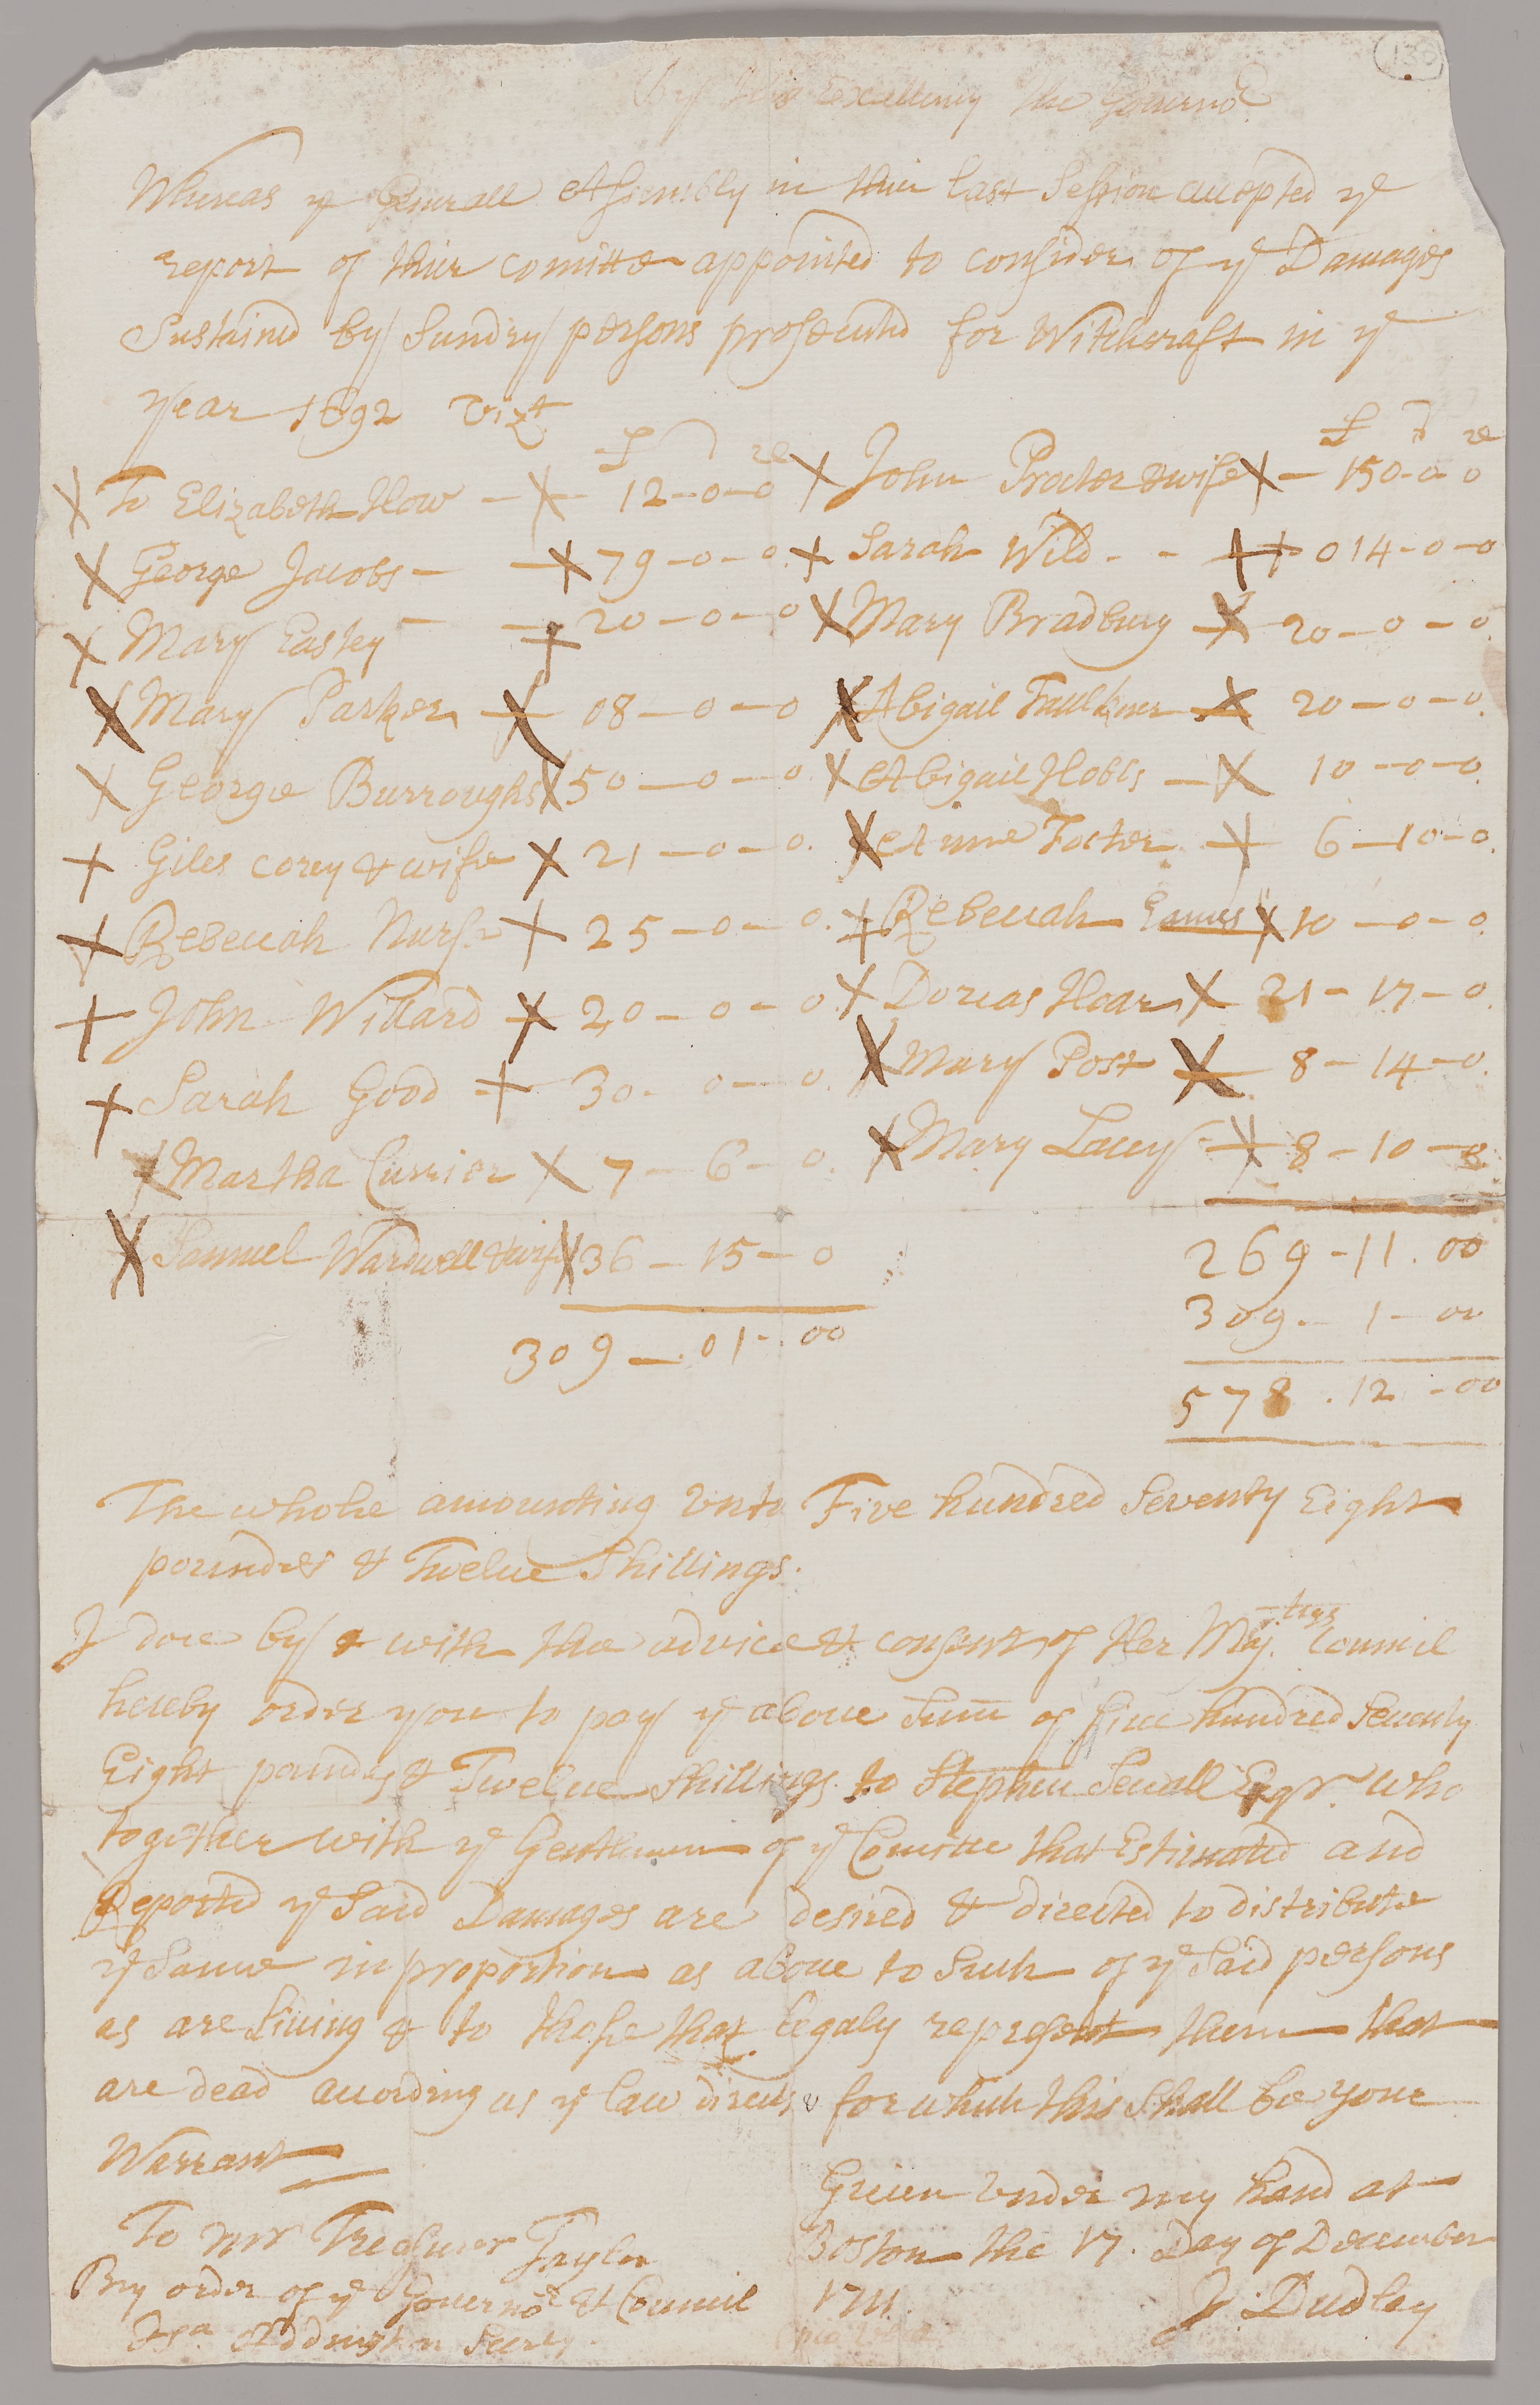 130
By His Excellency the Governor
Whereas ye Generall Assembly in their last Session accepted ye
report of their comitte appointed to consider of ye Damages
Sustained by Sundry persons prosecuted for Witchcraft in ye
year 1692 Vizt
£ s d
£ s d
To Elizabeth How 12-0-0
John Procter & wife 150-0-0
George Jacobs 79-0-0
Sarah Wild 014-0-0
Mary Eastey 20-0-0
Mary Bradbury 20-0-0
Mary Parker 08-0-0
Abigail Faulkner 20-0-0
George Burroughs 50-0-0
Abigail Hobbs 10-0-0
Giles Corey & wife 21-0-0
Anne Foster 6-10-0
Rebeccah Nurse 25-0-0
Rebeccah Eames 10-0-0
John Willard 20-0-0
Dorcas Hoar 21-17-0
Sarah Good 30-0-0
Mary Post 8-14-0
Martha Carrier 7-6-0
Mary Lacey 8-10-0
Samuel Wardwell & wife 36-15-0
269-11.00
309-1-00
309-01-00
578.12-00
The whole amounting unto Five hundred Seventy Eight
poundes & Twelve Shillings.
I doe by & with the advice & consent of Her Maj.tys Council
hereby order you to pay ye above Sum of five hundred Seventy
Eight pounds & Twelve Shillings to Stephen Sewall Esqr. who
together with ye Gentlemen of ye Comitte that Estimated and
Reported ye Said Damages are desired & directed to distribute
ye Same in proportion as above to Such of ye Said persons
as are Living & to those that legaly represent them that
are dead according as ye law directs & for which this Shall be your
Warrant
Given under my hand at
To Mr Treasurer Taylor
Boston the 17. Day of December
By order of ye Governor & Council
1711.
J. Dudley
Isa Addington Secrty.